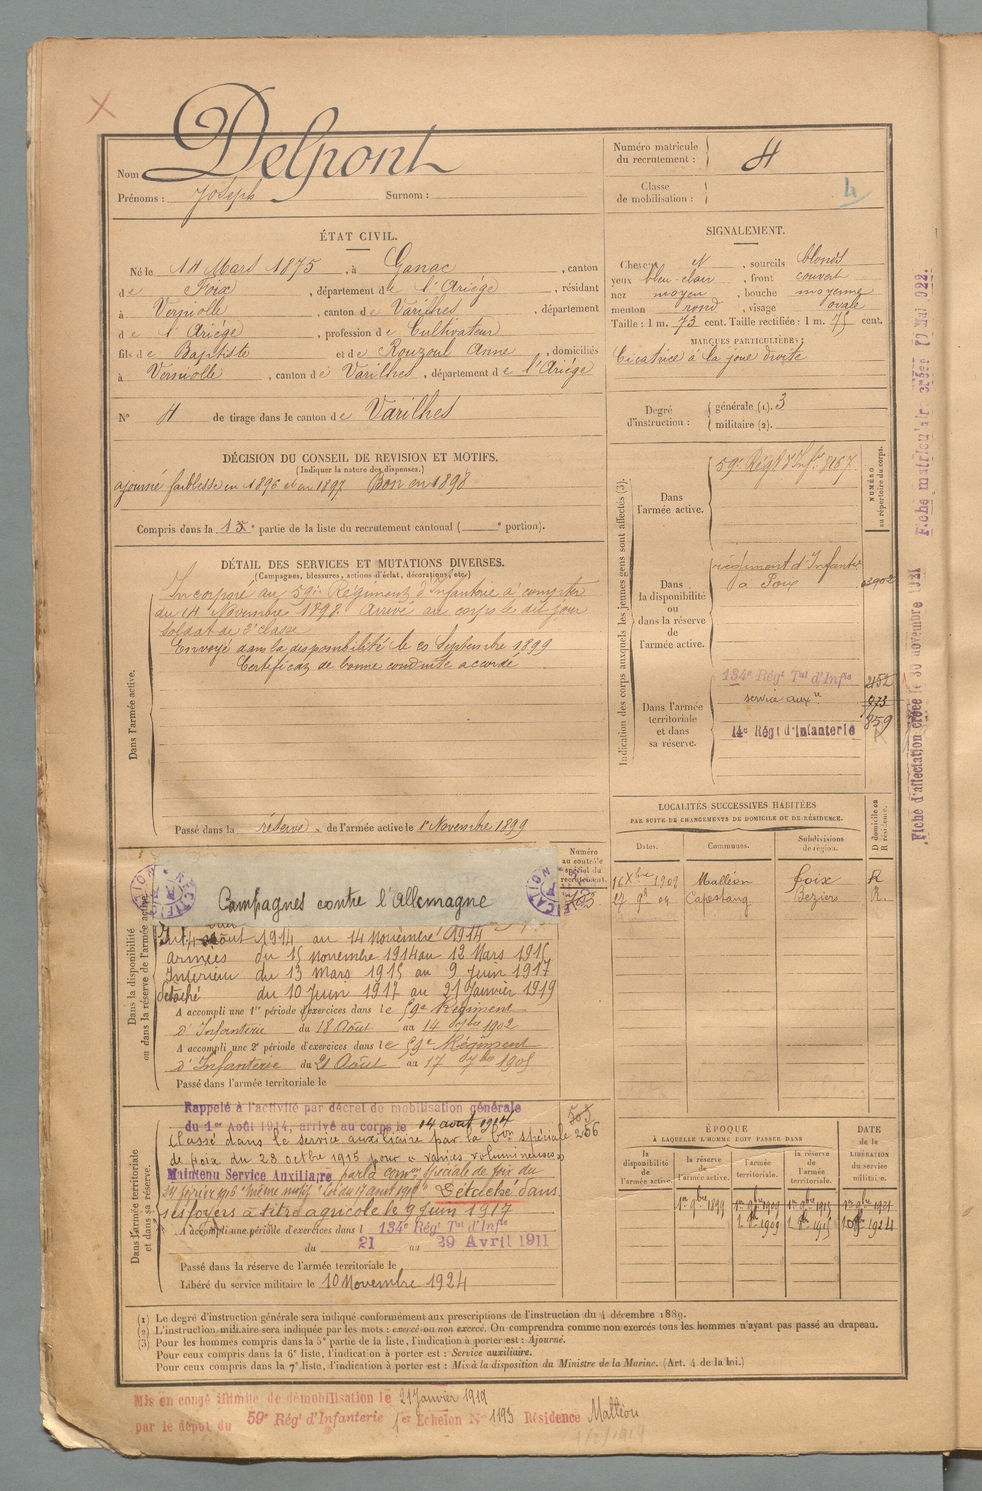 Nom Delpont
Prénoms : Joseph Surnom :
Numéro matricule
du recrutement : 4
Classe
de mobilisation : 4
ÉTAT CIVIL.
Né le 14 Mars 1875, à Ganac, canton
de Foix, département de l'Ariège, résidant
à Verniolle, canton de Varilhes, département
de l'Ariège, profession de Cultivateur
fils de Baptiste et de Rouzoul Anne, domiciliés
à Verniolle, canton de Varilhes, département de l'Ariège
N° 4 de tirage dans le canton de Varilhes
SIGNALEMENT.
Cheveux N, sourcils blonds
yeux bleu clair, front couvert
nez moyen, bouche moyenne
menton rond, visage ovale
Taille : 1 m. 73 cent. Taille rectifiée : 1 m. 75 cent.
MARQUES PARTICULIÈRES :
Cicatrice à la joue droite
Degré
d'instruction :
générale (1). 3
militaire (2).
DÉCISION DU CONSEIL DE REVISION ET MOTIFS.
(Indiquer la nature des dispenses.)
ajourné faiblesse en 1896 et en 1897 Bon en 1898
Compris dans la partie de la liste du recrutement cantonal ( portion).
DÉTAIL DES SERVICES ET MUTATIONS DIVERSES.
(Campagnes, blessures, actions d'éclat, décorations, etc.)
Dans l'armée active.
Incorporé au 59e Régiment d'Infanterie à compter
du 14 Novembre 1898. Arrivé au corps le dit jour
soldat de 2e classe
Envoyé dans la disponibilité le 20 Septembre 1899
Certificat de bonne conduite accordé
Passé dans la réserve de l'armée active le 1er Novembre 1899
Indication des corps auxquels les jeunes gens sont affectés (3).
NUMÉRO
au répertoire du corps.
Dans
l'armée active.
59e Régt d'Infie 7167
Dans
la disponibilité
ou
dans la réserve
de
l'armée active.
régiment d'Infanterie
à Foix
Dans l'armée
territoriale
et dans
sa réserve.
134e Régt Tal d'Infie
service auxre
14e Régt d'Infanterie 859
LOCALITÉS SUCCESSIVES HABITÉES
PAR SUITE DE CHANGEMENTS DE DOMICILE OU DE RÉSIDENCE.
Dates. Communes. Subdivisions
de région. D domicile ou
R résidence.
16 Xbre 1902 Malléon foix R
27 9bre 04 Capestang Béziers R.
Numéro
au contrôle
spécial du
recrutement.
Dans la disponibilité
ou dans la réserve de l'armée active.
Campagnes contre l'Allemagne
août 1914 au 14 Novembre 1914
armées du 15 novembre 1914 au 12 Mars 1915
Intérieur du 13 mars 1915 au 9 Juin 1917
détaché du 10 Juin 1917 au 21 Janvier 1919
A accompli une 1re période d'exercices dans le 59e Régiment
d'Infanterie du 18 Août au 14 7bre 1902
A accompli une 2e période d'exercices dans le 59e Régiment
d'Infanterie du 21 Août au 17 7bre 1905
Passé dans l'armée territoriale le
Dans l'armée territoriale
et dans sa réserve.
Rappelé à l'activité par décret de mobilisation générale
du 1er Août 1914, arrivé au corps le 14 août 1914
Classé dans le service auxiliaire par la Con spéciale
de foix du 28 octbre 1915 pour "varices volumineuses"
Maintenu Service Auxiliaire par la Comon spéciale de foix du
Détaché dans
ses foyers à titre agricole le 9 Juin 1917
A accompli une période d'exercices dans l 134e Régt Tal d'Infie
du 21 au 29 Avril 1911
Passé dans la réserve de l'armée territoriale le
Libéré du service militaire le 10 Novembre 1924
505
266
ÉPOQUE
À LAQUELLE L'HOMME DOIT PASSER DANS
DATE
de la
LIBÉRATION
du service
militaire.
la
disponibilité
de
l'armée active.
la réserve
de
l'armée active.
l'armée
territoriale.
la réserve
de l'armée
territoriale.
1er 9bre 1899
(1) Le degré d'instruction générale sera indiqué conformément aux prescriptions de l'instruction du 4 décembre 1889.
(2) L'instruction militaire sera indiquée par les mots : exercé ou non exercé. On comprendra comme non exercés tous les hommes n'ayant pas passé au drapeau.
(3) Pour les hommes compris dans la 5e partie de la liste, l'indication à porter est : Ajourné.
Pour ceux compris dans la 6e liste, l'indication à porter est : Service auxiliaire.
Pour ceux compris dans la 7e liste, l'indication à porter est : Mis à la disposition du Ministre de la Marine. (Art. 4 de la loi.)
Mis en congé illimité de démobilisation le 21 Janvier 1919
par le dépôt du 59e Régt d'Infanterie 1er Echelon N° 1193 Résidence Malléon
Fiche d'affectation créée le 30 novembre 1921
Fiche matriculaire créée Mai 1922.